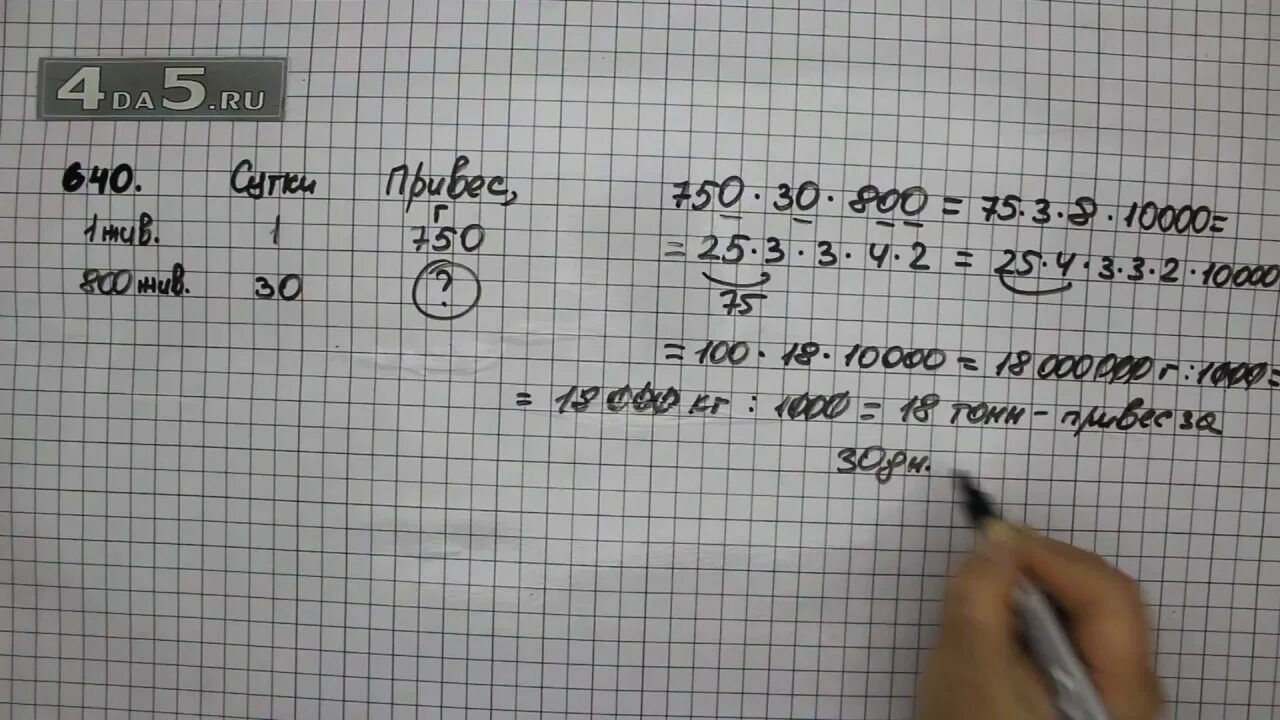 4DA5.RU
640. Сутки Привес,
г
1 жив. 1 750
800 жив. 30 ?
750 · 30 · 800 = 75 · 3 · 8 · 10000 =
= 25 · 3 · 3 · 4 · 2 = 25 · 4 · 3 · 3 · 2 · 10000
75
= 100 · 18 · 10000 = 18 000 000 г : 1000 =
= 18 000 кг : 1000 = 18 тонн - привес за
30 дн.